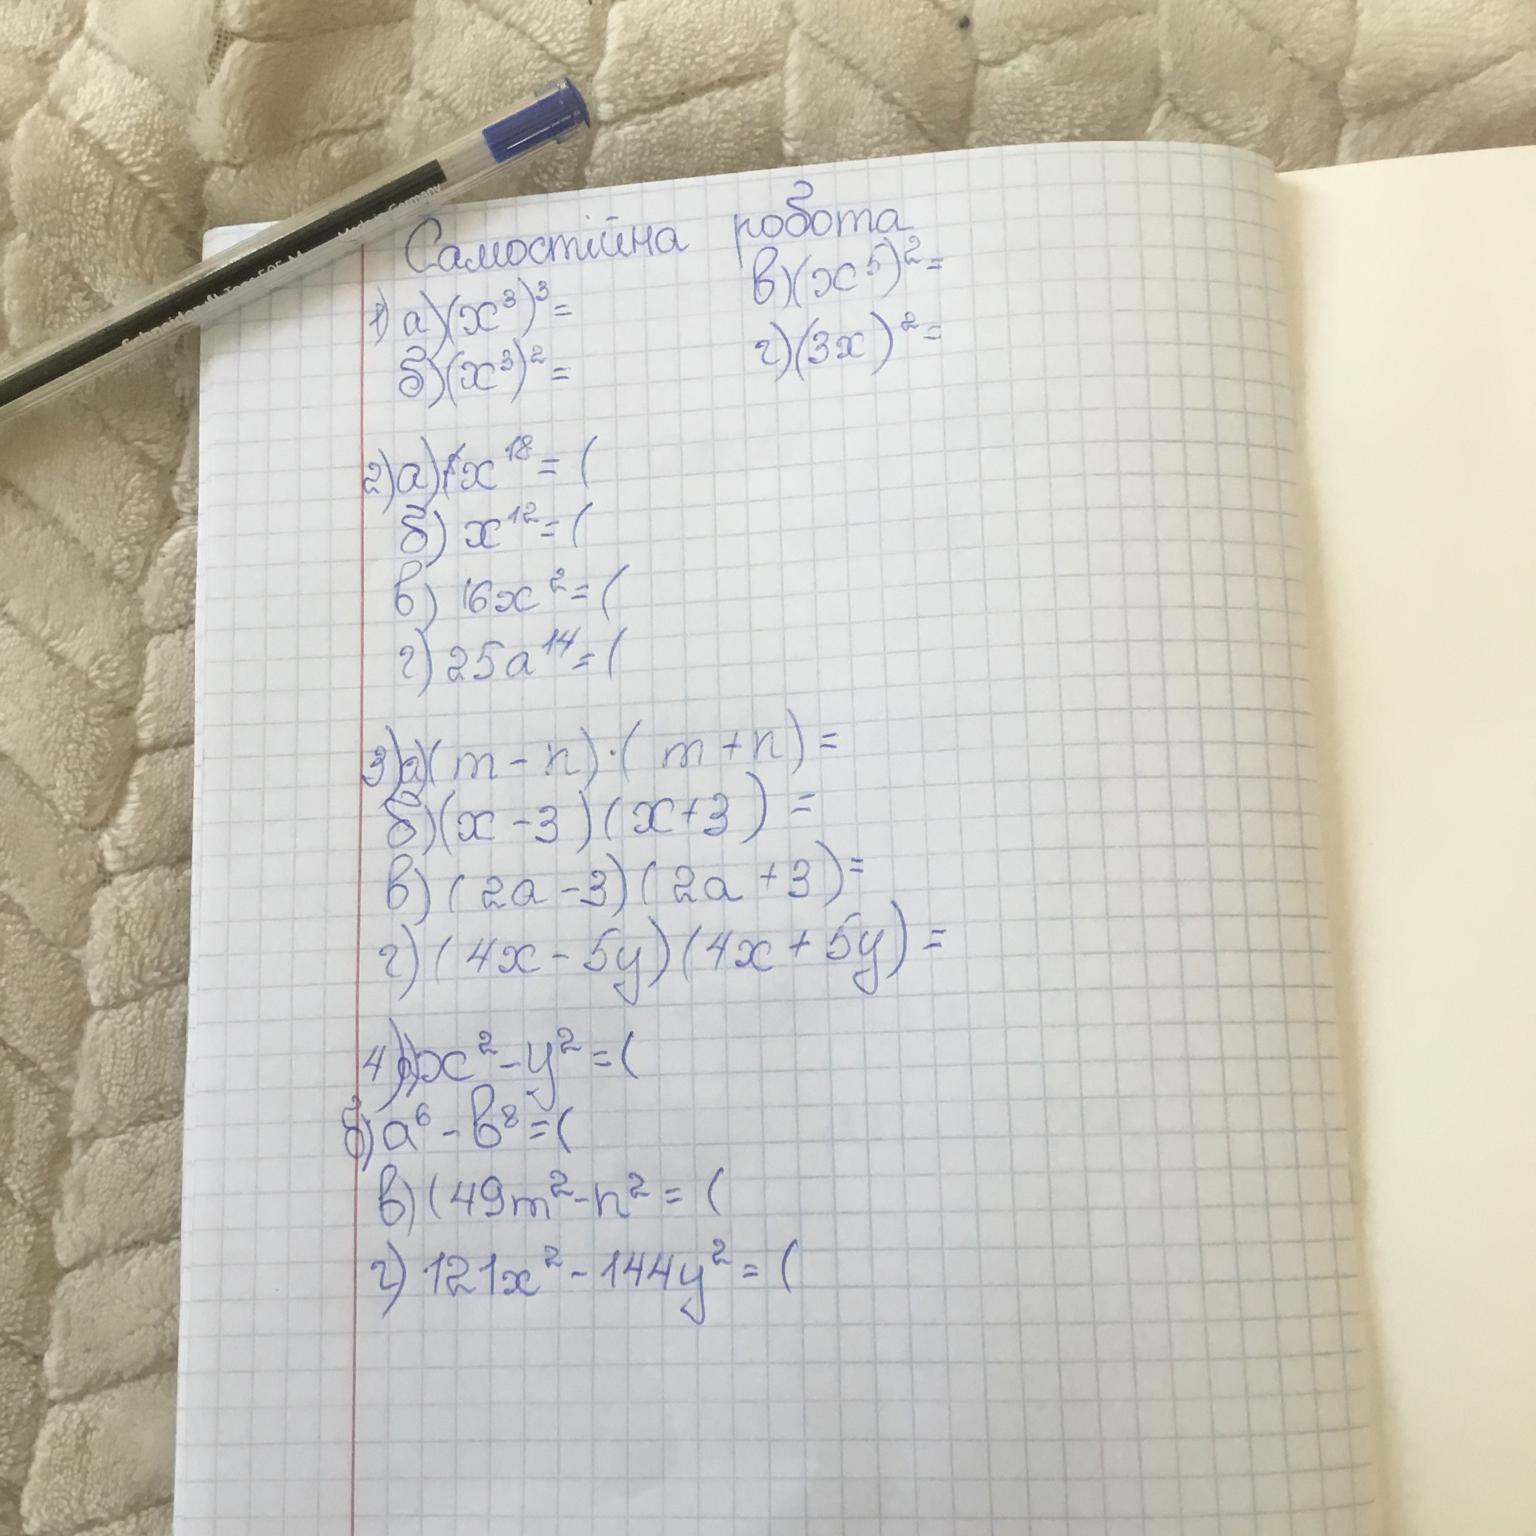 Made in Germany
Schneider
Самостійна робота
1) а) (x³)³=
в) (x⁵)²=
б) (x³)²=
г) (3x)²=
2) а) x¹⁸ = (
б) x¹² = (
в) 16x² = (
г) 25a¹⁴ = (
3) а) (m - n) · (m + n) =
б) (x - 3) (x + 3) =
в) (2a - 3) (2a + 3) =
г) (4x - 5y) (4x + 5y) =
4) а) x² - y² = (
б) a⁶ - b⁸ = (
в) (49m² - n² = (
г) 121x² - 144y² = (